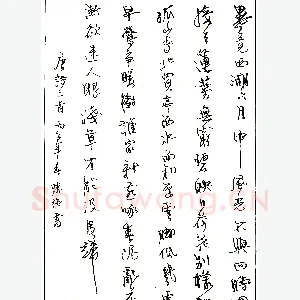 畢竟西湖六月中風光不與四時同
接天蓮葉無窮碧映日荷花別樣
孤山寺北賈亭西水面初平雲腳低幾處
早鶯爭暖樹誰家新燕啄春泥亂花
漸欲迷人眼淺草才能沒馬蹄
唐詩二首
Shufawang.CN